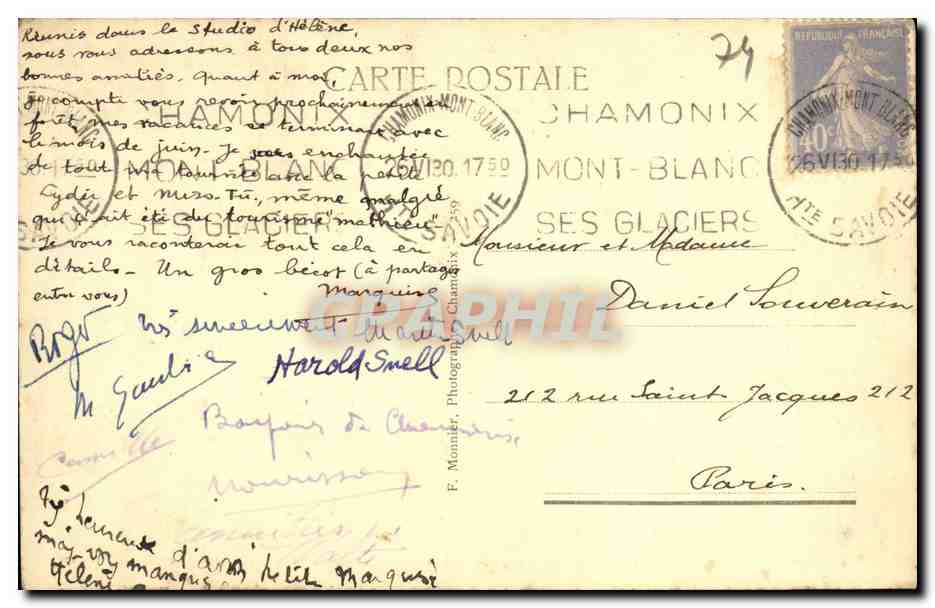 Réunis dans le studio d'Hélène,
nous vous adressons à tous deux nos
bonnes amitiés, quant à moi,
je compte vous revoir prochainement en
forêt, mes vacances se terminant avec
le mois de juin. Je suis enchantée
de tout ma tournée avec la petite
Lydie et même malgré
qu'il ait été du tourisme "mathieu"
Je vous raconterai tout cela en
détails - Un gros bécot (à partager
entre vous)
Marquise
Roger
très sincèrement Snell
Harold Snell
M
Bonjour de
Camille
heureuse d'avoir petite Marquise
mais vous manquez
Hélène
CARTE POSTALE
74
REPUBLIQUE FRANÇAISE
40c
CHAMONIX
MONT-BLANC
SES GLACIERS
CHAMONIX-MONT-BLANC
26 VI 30. 17 50
HTE SAVOIE
CHAMONIX
MONT-BLANC
SES GLACIERS
CHAMONIX-MONT-BLANC
26 VI 30. 17 50
HTE SAVOIE
F. Monnier, Photographe, Chamonix 259
Monsieur et Madame
Daniel Souverain
212 rue Saint Jacques 212
Paris.
CPAPHIL.COM